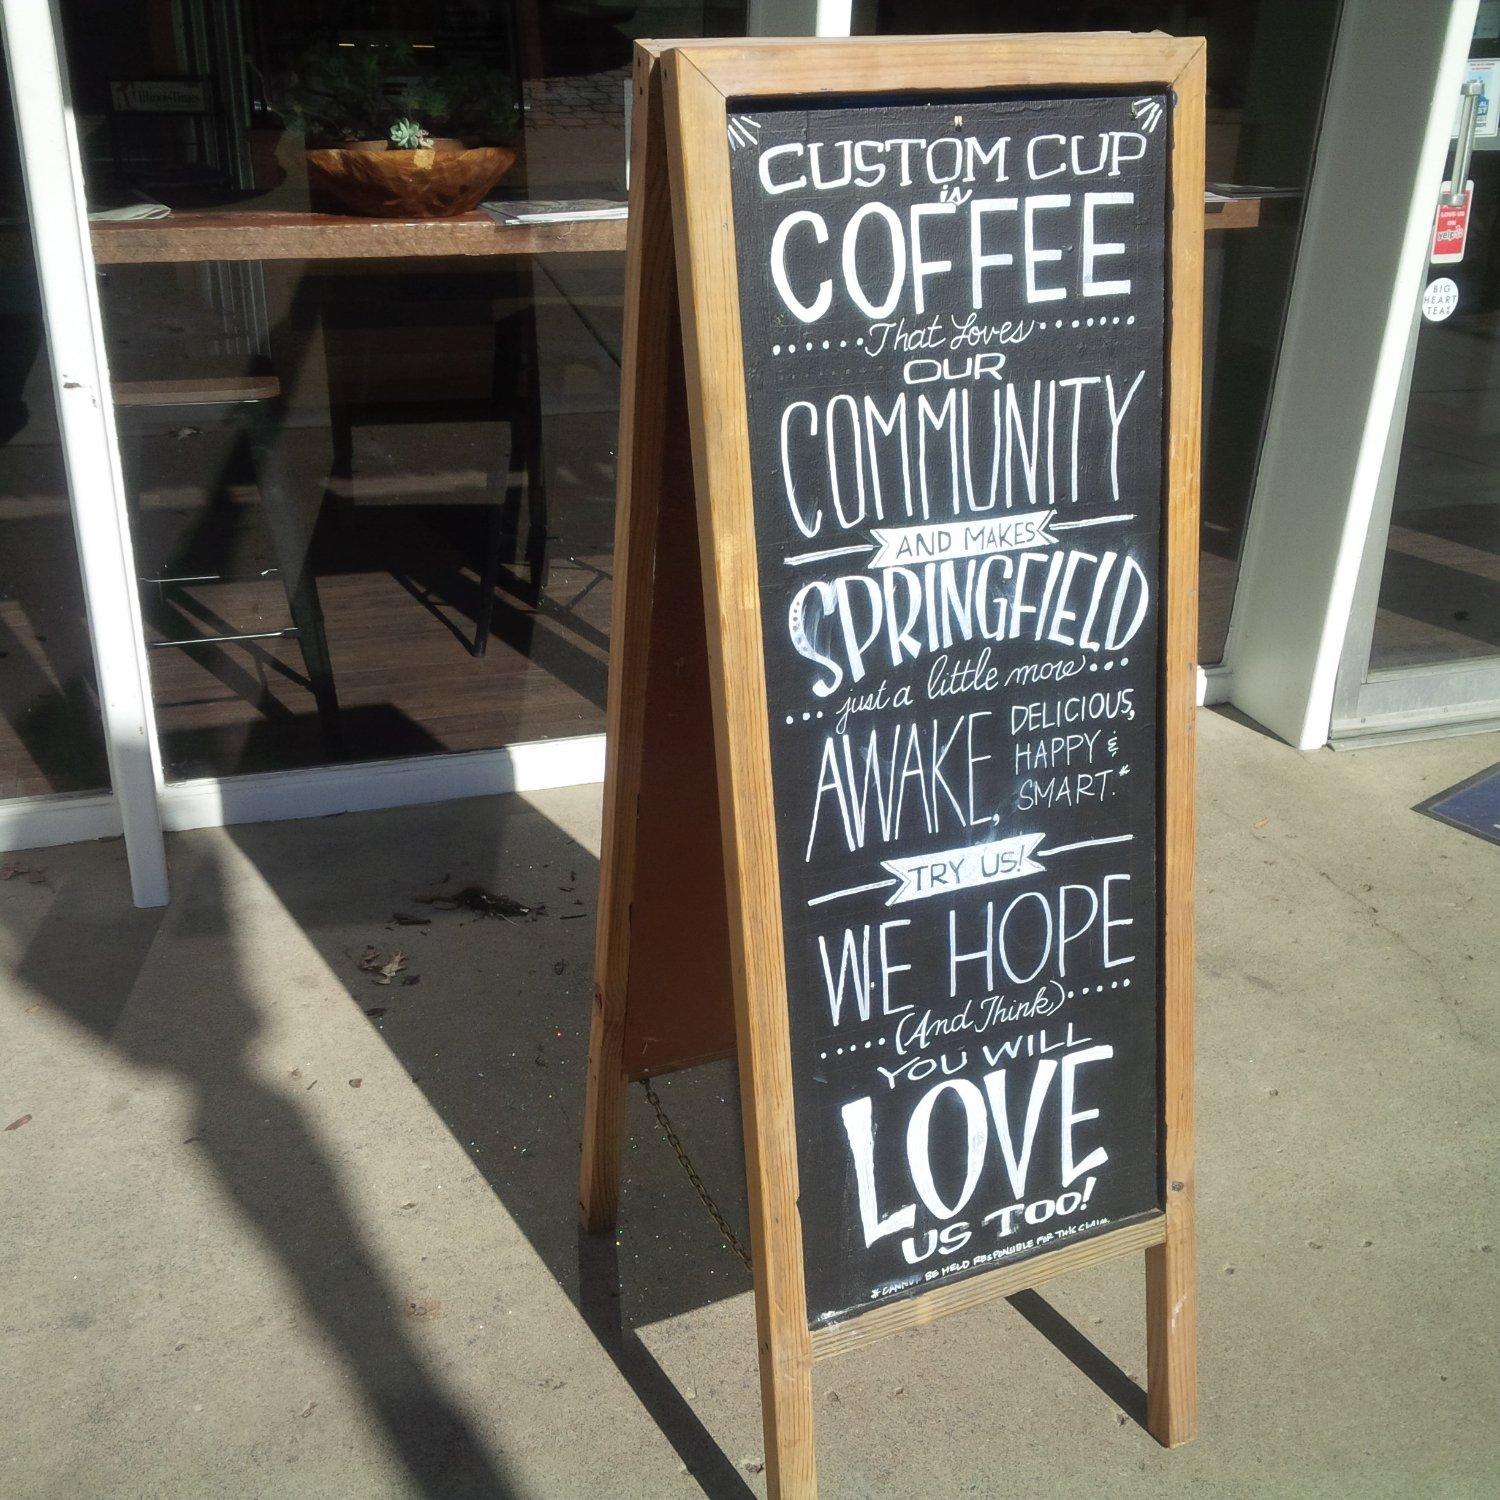 CUSTOM CUP
in
COFFEE
That Loves
OUR
COMMUNITY
AND MAKES
SPRINGFIELD
just a little more
AWAKE,
DELICIOUS,
HAPPY &
SMART.*
TRY US!
WE HOPE
(And Think)
YOU WILL
LOVE
US TOO!
* CANNOT BE HELD RESPONSIBLE FOR THIS CLAIM.
Illinois Times
LOVE US
ON
yelp
BIG
HEART
TEA